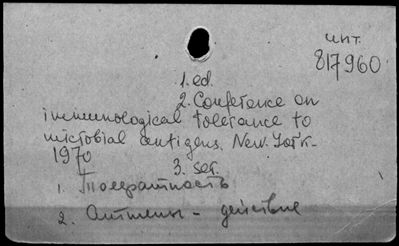 инт.
817960
1. ed.
2. Conference on
immunological tolerance to
microbial antigens. New-York-
1970
3. ser.
1. Толерантность
2. Антигены - действие